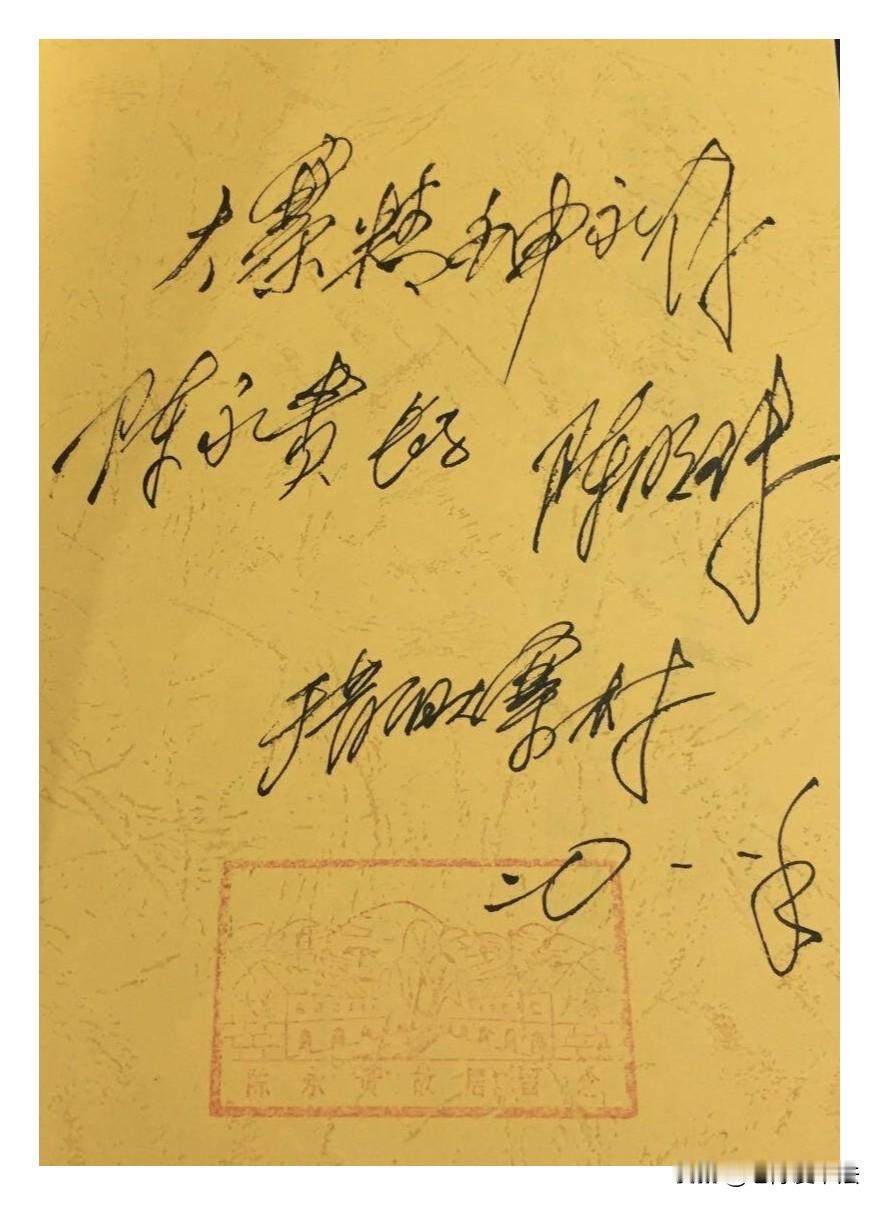 大寨精神永存
陈永贵长子 陈明珠
于昔阳大寨村
二〇一一年
陈永贵故居留念